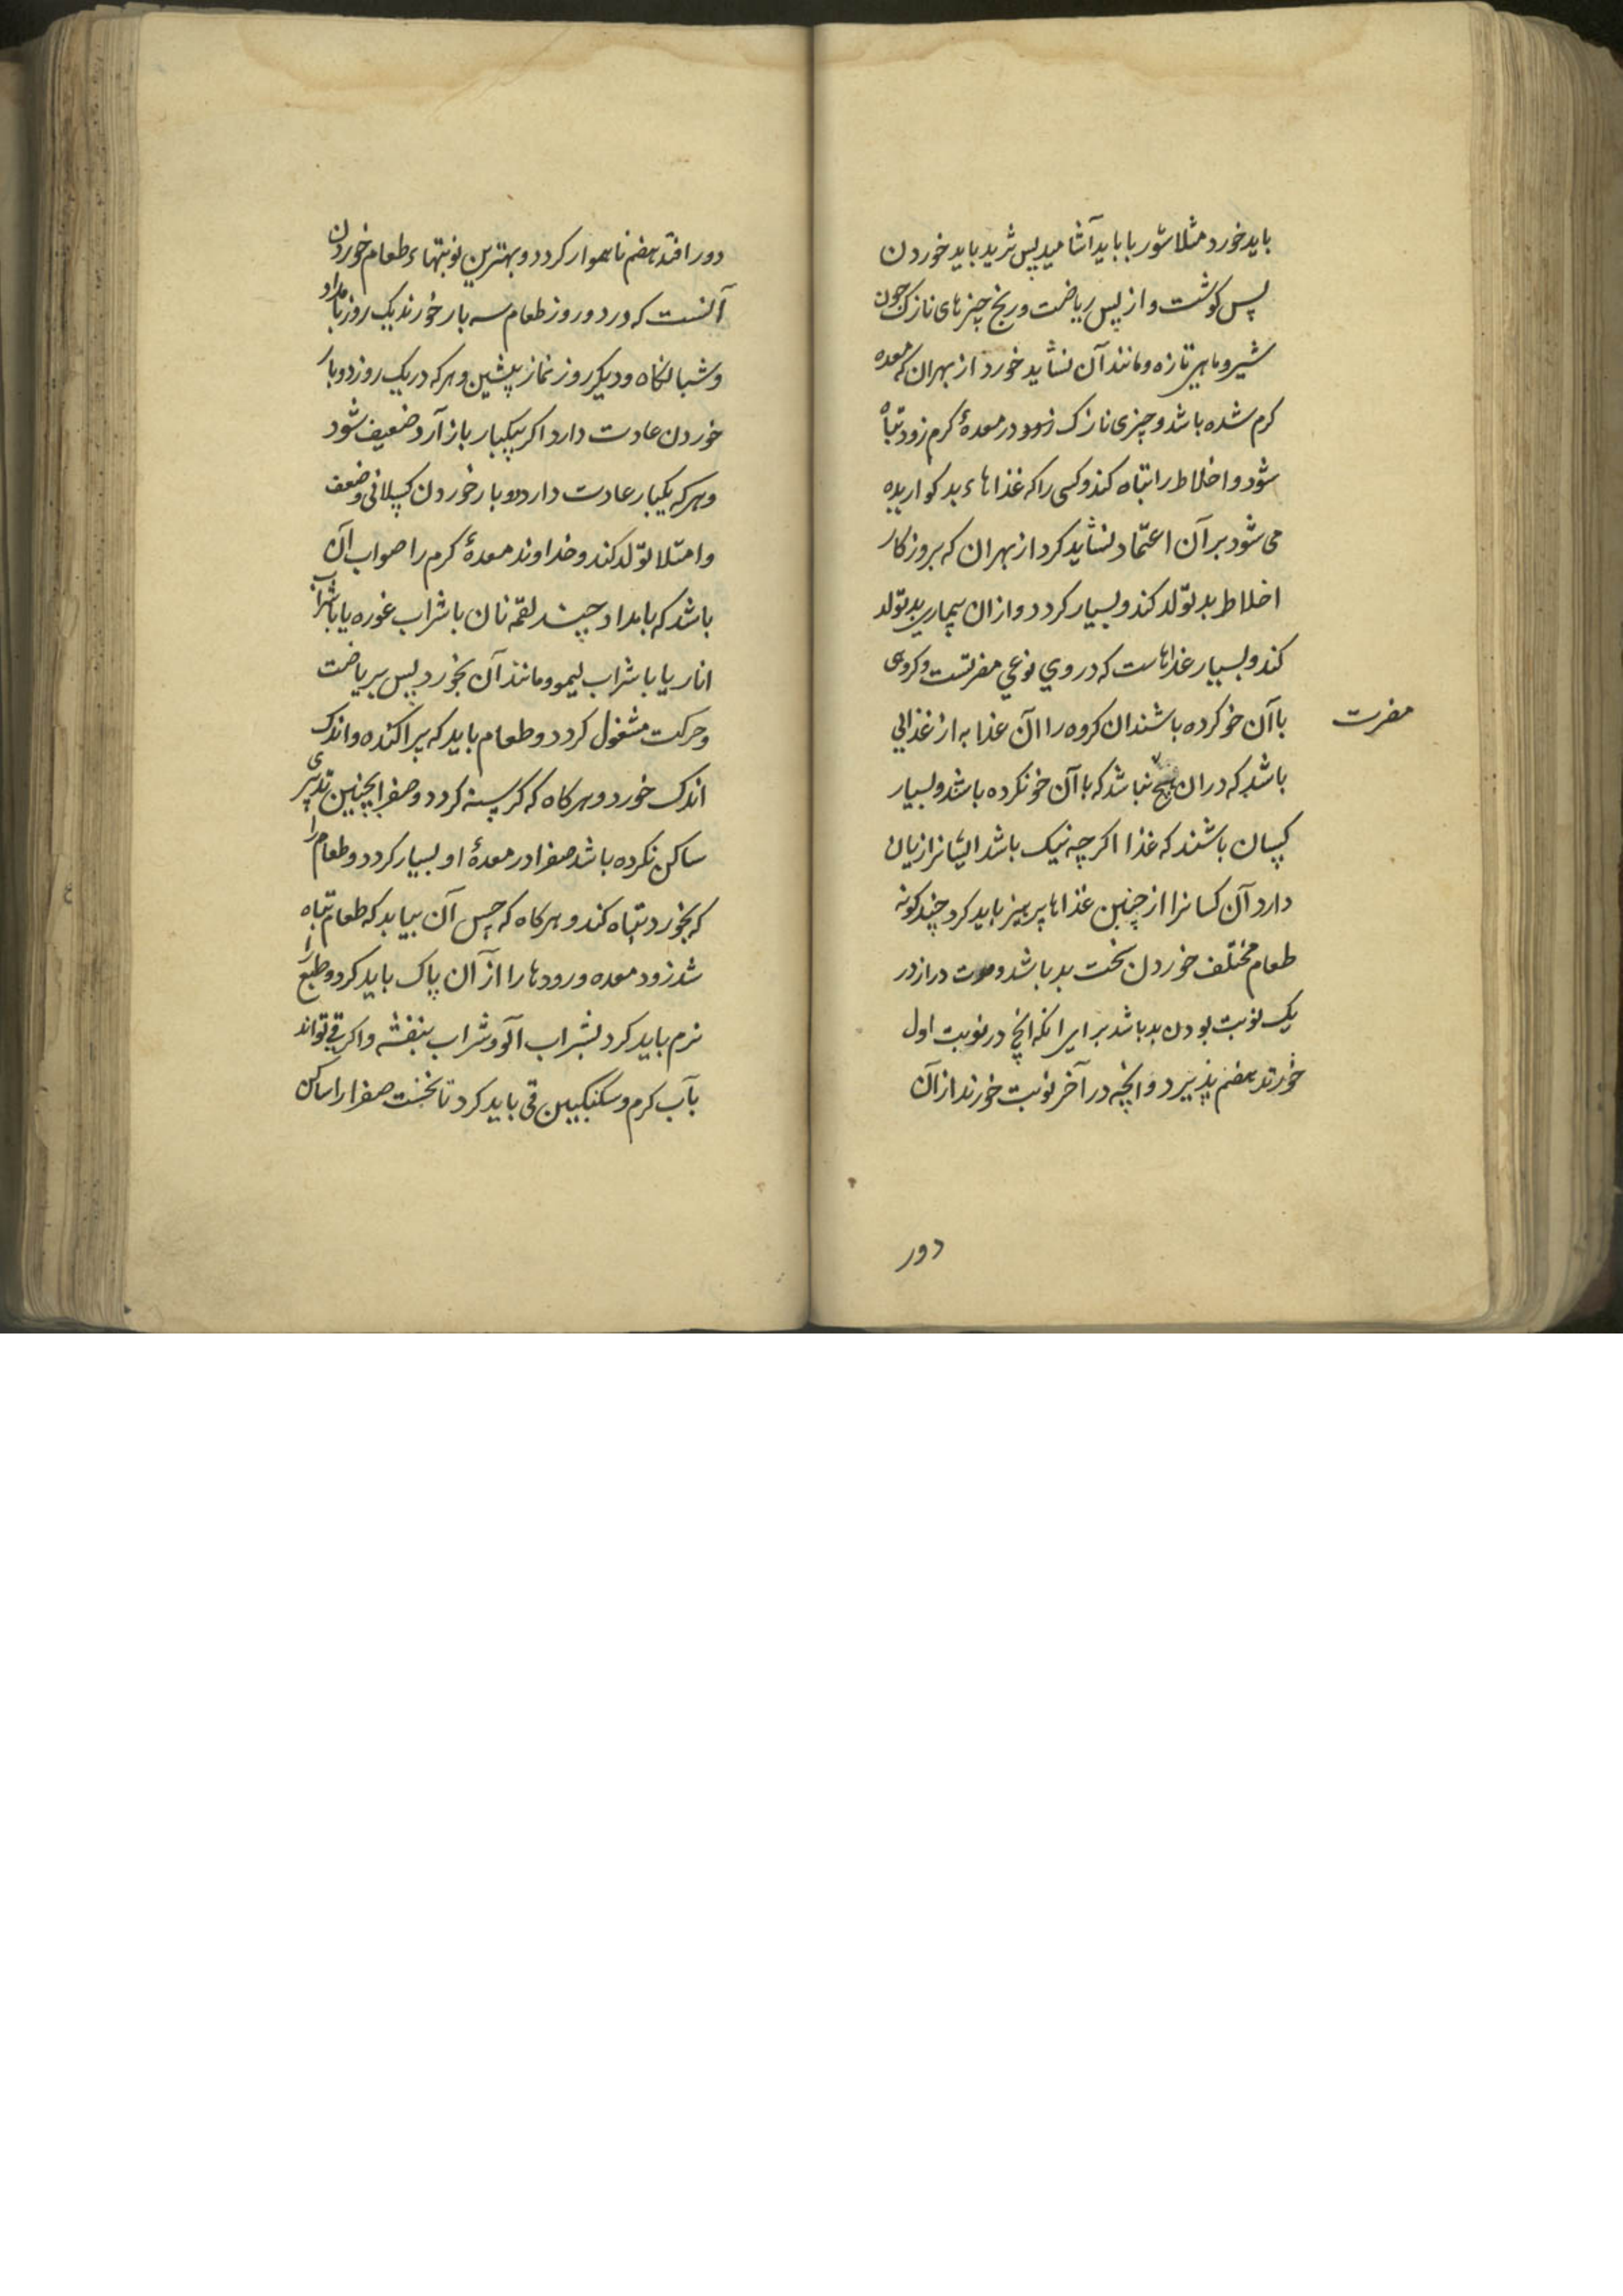 باید خورد مثلا شوربا باید آشامید پس ثرید باید خوردن
پس کوشت و از پس ریاضت و رنج چیزهای نازک چون
شیر و ماهی تازه و مانند آن نشاید خورد از بهر ان که معده
کرم شده باشد و چیزی نازک زود در معدهٔ کرم زود تباه
شود و اخلاط را تباه کند و کسی را که غذاهاء بد کواریده
می شود بر آن اعتماد نشاید کرد از بهر ان که بروزکار
اخلاط بد تولد کند و بسیار کردد و ازان بیماریٔ بد تولد
کند و بسیار غذاهاست که در وي نوعي مضرتست و کروهی
مضرت
با آن خو کرده باشند ان کروه را آن غذا به از غذائی
باشد که در ان هیچ نباشد که با آن خو نکرده باشد و بسیار
کسان باشند که غذا اکر چه نیک باشد ایشانرا زیان
دارد آن کسانرا از چنین غذاها پرهیز باید کرد چند کونه
طعام مختلف خوردن سخت بد باشد و مدت دراز در
یک نوبت بودن بد باشد برای انکه انچ در نوبت اول
خورند هضم پذیرد و انچه در آخر نوبت خورند از آن
دور
دور افتد هضم ناهموار کردد و بهترین نوبتهاء طعام خوردن
آنست که در دو روز طعام سه بار خورند یک روز بامداد
و شبانکاه و دیکر روز نماز پیشین و هر که در یک روز دو بار
خوردن عادت دارد اکر بیکبار باز آرد ضعیف شود
و هر که یکبار عادت دارد دو بار خوردن کسلانی و ضعف
و امتلا تولد کند و خداوند معدهٔ کرم را صواب آن
باشد که بامداد چند لقمه نان با شراب غوره یا با شراب
انار یا با شراب لیمو و مانند آن بخورد پس بریاضت
و حرکت مشغول کردد و طعام باید که پراکنده و اندک
اندک خورد و هر کاه که کرسنه کردد و صفرا بچنین تدبیری
ساکن نکرده باشد صفرا در معدهٔ او بسیار کردد و طعام را
که بخورد تباه کند و هر کاه که حس آن بیابد که طعام تباه
شد زود معده و رودها را از آن پاک باید کرد و طبع را
نرم باید کرد بشراب آلو و شراب بنفشه و اکر قی تواند
بآب کرم و سکنکبین قی باید کرد تا نخست صفرا را ساکن